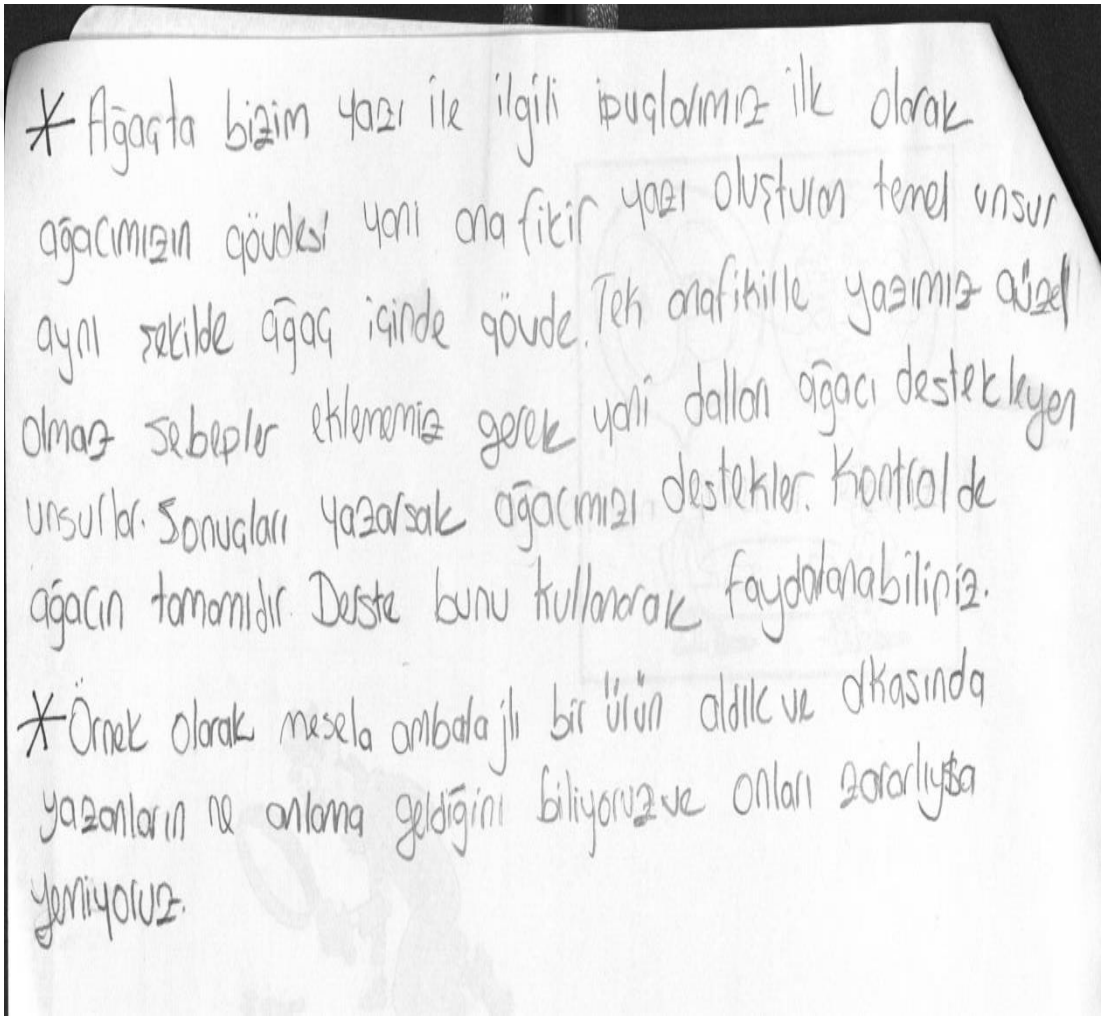 * Ağaçta bizim yazı ile ilgili ipuçlarımız ilk olarak
ağacımızın gövdesi yani ana fikir yazı oluşturan temel unsur
aynı şekilde ağaç içinde gövde. Tek anafikirle yazımız güzel
olmaz sebepler eklememiz gerek yani dalları ağacı destekleyen
unsurlar. Sonuçları yazarsak ağacımızı destekler. Kontrolde
ağacın tamamıdır. Derste bunu kullanarak faydalanabiliriz.
* Örnek olarak mesela ambalajlı bir ürün aldık ve arkasında
yazanların ne anlama geldiğini biliyoruz ve onları zararlıysa
yemiyoruz.